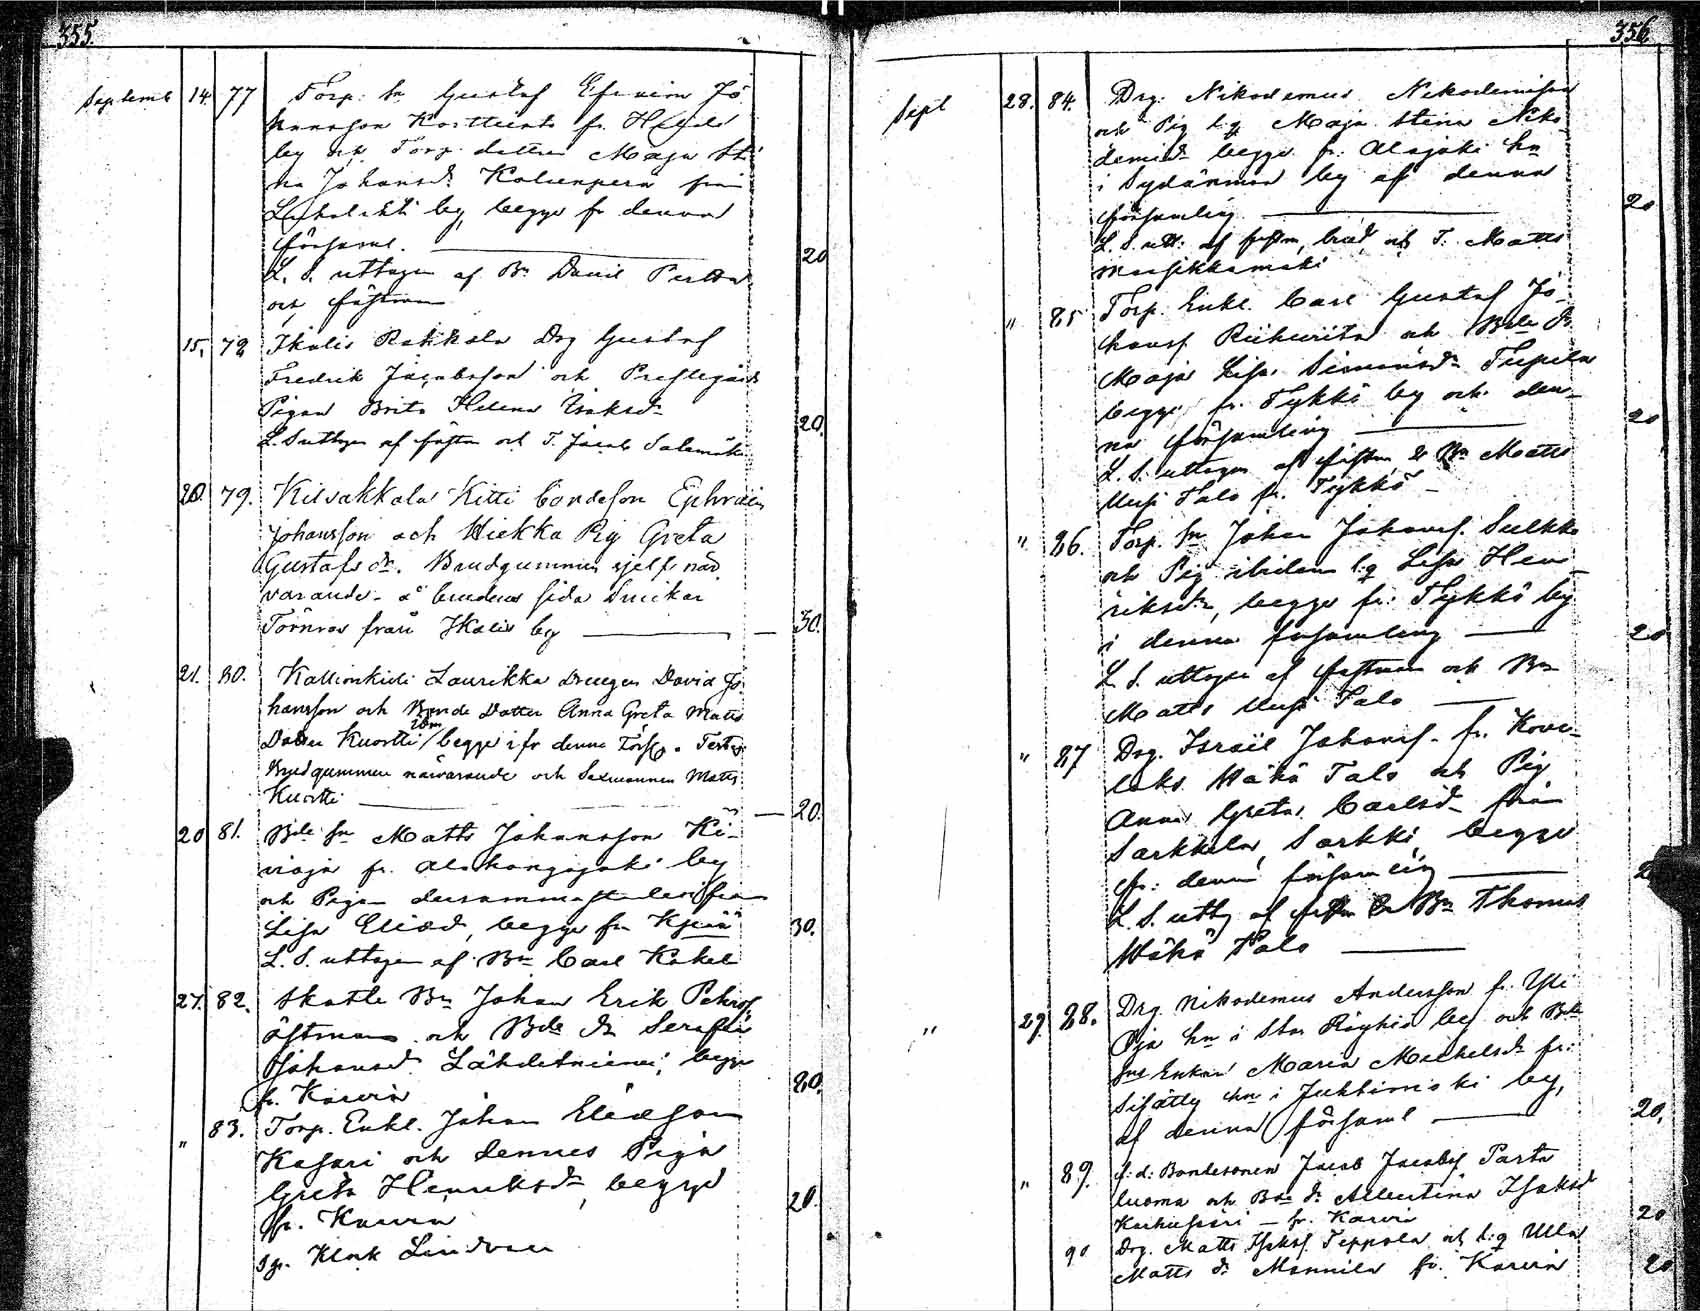 355.
Septemb 14. 77 Torp. sn Gustaf Efraim Jo
hansson fr.
by och Torp. dottren Maja Sti
na Johansd. från
by, begge fr denna
församl. 20
L. S. uttagen af Bn David Perttu
och fästman
15. 78 Ikalis Rakkola Drg Gustaf
Fredrik Jacobsson och Prestegårds
Pigan Brita Helena Isaksdr 20.
L. S uttagen af fästm och T. Jacob Salomäki
20. 79. Kilvakkala Kitti bondeson Ephraim
Johansson och Hiekka Pig Greta
Gustafsdr. Brudgummen sjelf när
varande - å brudens sida Snickar
Törnroos från Ikalis by 30.
21. 80. Kallionkieli Laurikka Drengen David Jo
hansson och Bonde Dotter Anna Greta Matts
Dotter Kuortti / begge ifr denna Förs.
Brudgummen närvarande och Sexmannen Matts
Kuortti 20.
20 81. Bde sn Matts Johansson Ki-
vioja fr. Alaskangasjoki by
och Pigan dersammastädes ifrån
Lisa Eliæd, begge fr Kyrö 30.
L. S. uttagen af Bn Carl Kokel
27. 82. Skatte Bn Johan Erik Pehrss
Östman och Bde dr Serafia
Johansd Lähdetniemi, begge
fr. Karvia 20.
" 83. Torp. Enkl. Johan Eliæson
Kasari och dennes Piga
Greta Henriksdr, begge
fr. Karvia 20.
Klock Lindroos
356
Sept 28. 84. Drg. Nikodemus Nikodemisson
och Pig l.q Maja Stina Niko
demidr begge fr. Alajoki hm
i Sydänmaa by af denna
församling 20
L. S. utt: af fästm, brud, och T. Matts
Mansikkamäki
" 85 Torp. Enkl. Carl Gustaf Jo-
hanss Riihiviita och Bde dr
Maja Lisa Simonsdr Tupila
begge fr. Tykkö by och den-
na församling 20
L. S. uttagen af fästm & Bn Matts
Uusi Talo fr. Tykkö
" 86. Torp. sn Johan Johanss. Sulkko
och Pig ibidem l.q Lisa Hen-
riksdr, begge fr. Tykkö by
i denna församling 20
L. S. uttagen af fästman och Bn
Matts Uusi Talo
" 87 Drg. Israel Johanss. fr. Kove-
laks Wähä Talo och Pig
Anna Greta Carlsdr från
Sarkkila, Sarkki, begge
fr. denna församling
L. S. uttg af fästm & Bn Thomas
Wähä Talo
" 29. 88. Drg Nikodemus Andersson fr. Yli
Oja hm i Stor Röyhiö by och Bde
sns Enkan Maria Michelsdr fr.
Sifätty hm i Juhtimäki by,
af denna församl 20.
" 89. f.d. Bondesonen Jacob Jacobss Parta
luoma och Bde dr Albertina Isaksd
Karhusaari - fr. Karvia 20
90 Drg. Matts Isakss. Teppola och l.q Ulla
Matts dr Mannila fr. Karvia 20